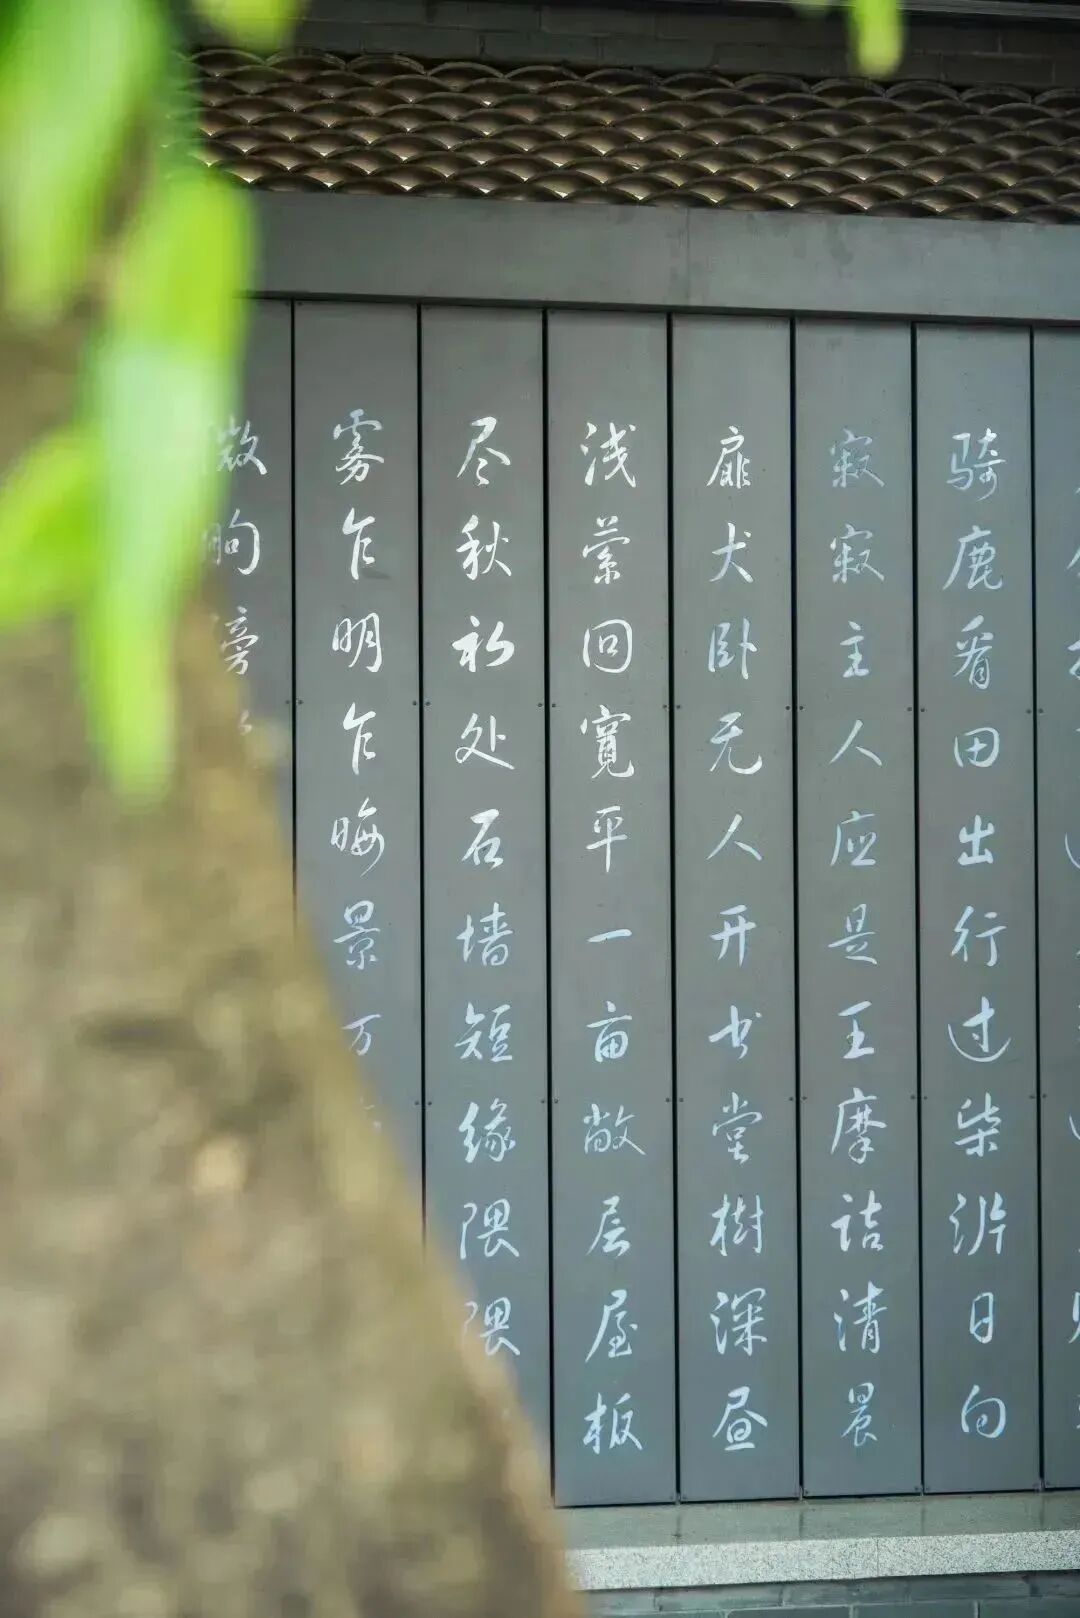 骑鹿看田出行过柴泝日向
寂寂主人应是王摩诘清晨
扉犬卧无人开书堂樹深昼
浅萦回寬平一亩敞层屋板
尽秋私处石墙短缘隈隈
雾乍明乍晦景万
微眴旁